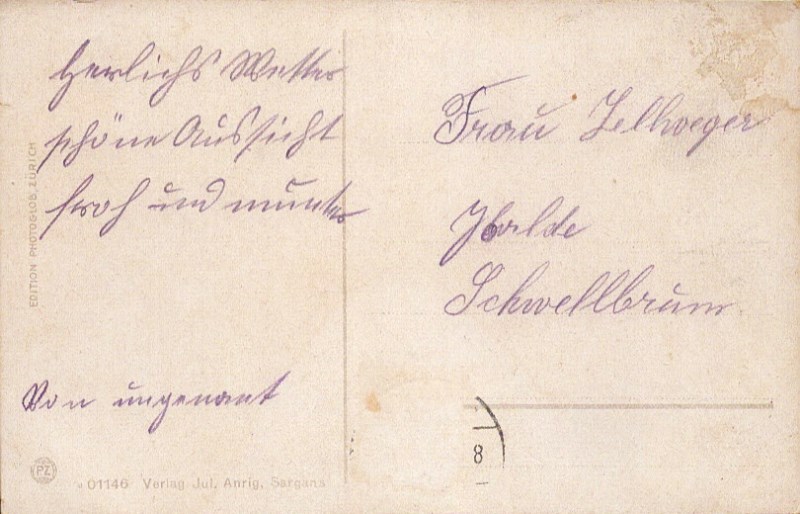 Herlichs Wetter
schöne Aussicht
froh und munter
Von ungenant
Frau Zellweger
Halde
Schwellbrunn
EDITION PHOTOGLOB, ZÜRICH
PZ
01146 Verlag Jul. Anrig, Sargans
8